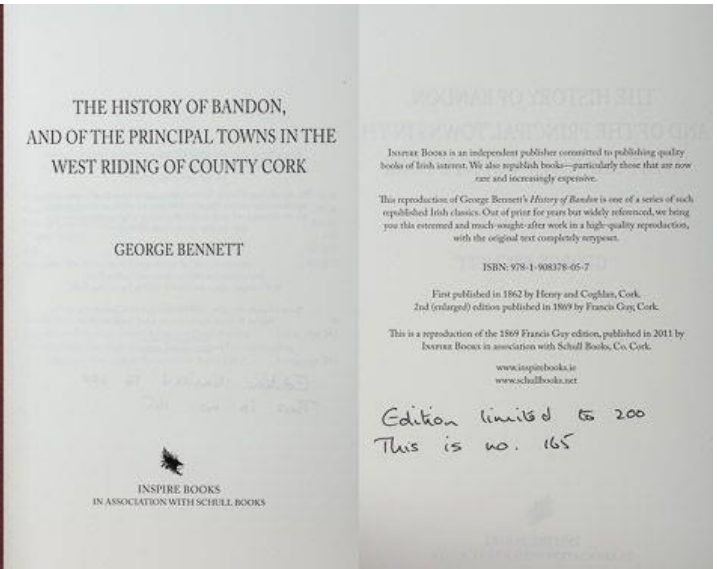 THE HISTORY OF BANDON,
AND OF THE PRINCIPAL TOWNS IN THE
WEST RIDING OF COUNTY CORK
GEORGE BENNETT
INSPIRE BOOKS
IN ASSOCIATION WITH SCHULL BOOKS
INSPIRE BOOKS is an independent publisher committed to publishing quality
books of Irish interest. We also republish books—particularly those that are now
rare and increasingly expensive.
This reproduction of George Bennett's History of Bandon is one of a series of such
republished Irish classics. Out of print for years but widely referenced, we bring
you this esteemed and much-sought-after work in a high-quality reproduction,
with the original text completely retypeset.
ISBN: 978-1-908378-05-7
First published in 1862 by Henry and Coghlan, Cork.
2nd (enlarged) edition published in 1869 by Francis Guy, Cork.
This is a reproduction of the 1869 Francis Guy edition, published in 2011 by
INSPIRE BOOKS in association with Schull Books, Co. Cork.
www.inspirebooks.ie
www.schullbooks.net
Edition limited to 200
This is no. 165